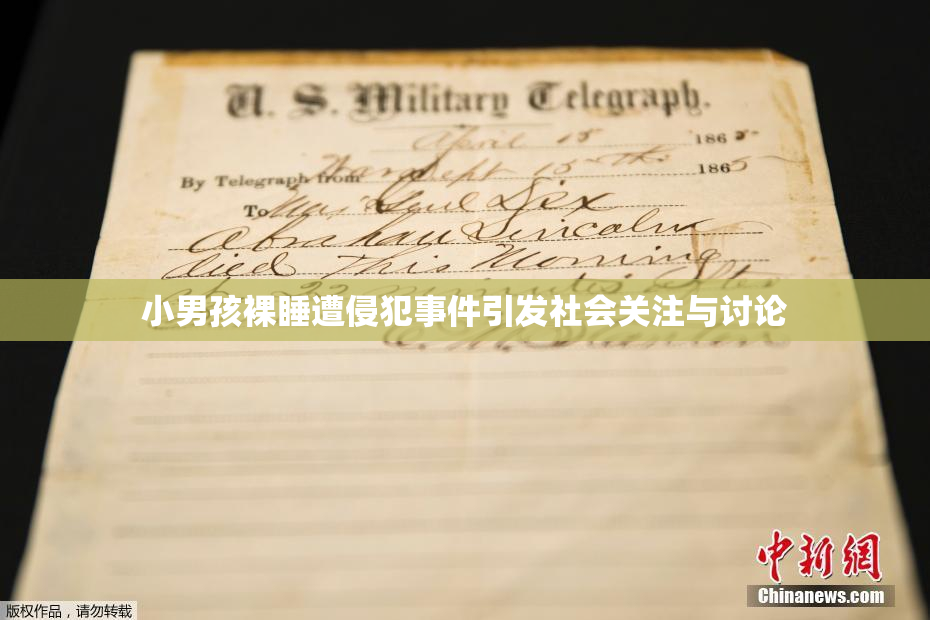 U. S. Military Telegraph.
April 15 1865
By Telegraph from War Dept 15th 1865
To Maj Genl Dix
Abraham Lincoln
died This Morning
22 minutes after
小男孩裸睡遭侵犯事件引发社会关注与讨论
中新网
Chinanews.com
版权作品，请勿转载